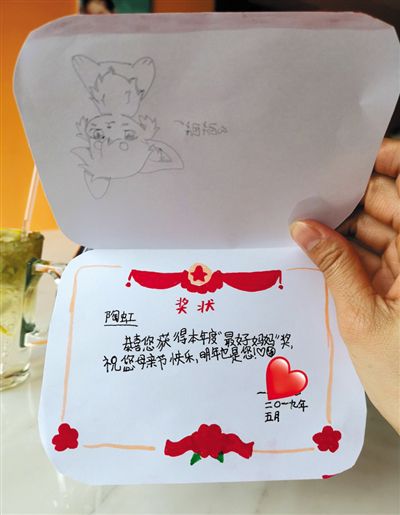 奖状
陶虹
恭喜您获“得本年度“最好妈妈”奖,
祝您母亲节快乐,明年也是您!
二〇一九年
五月